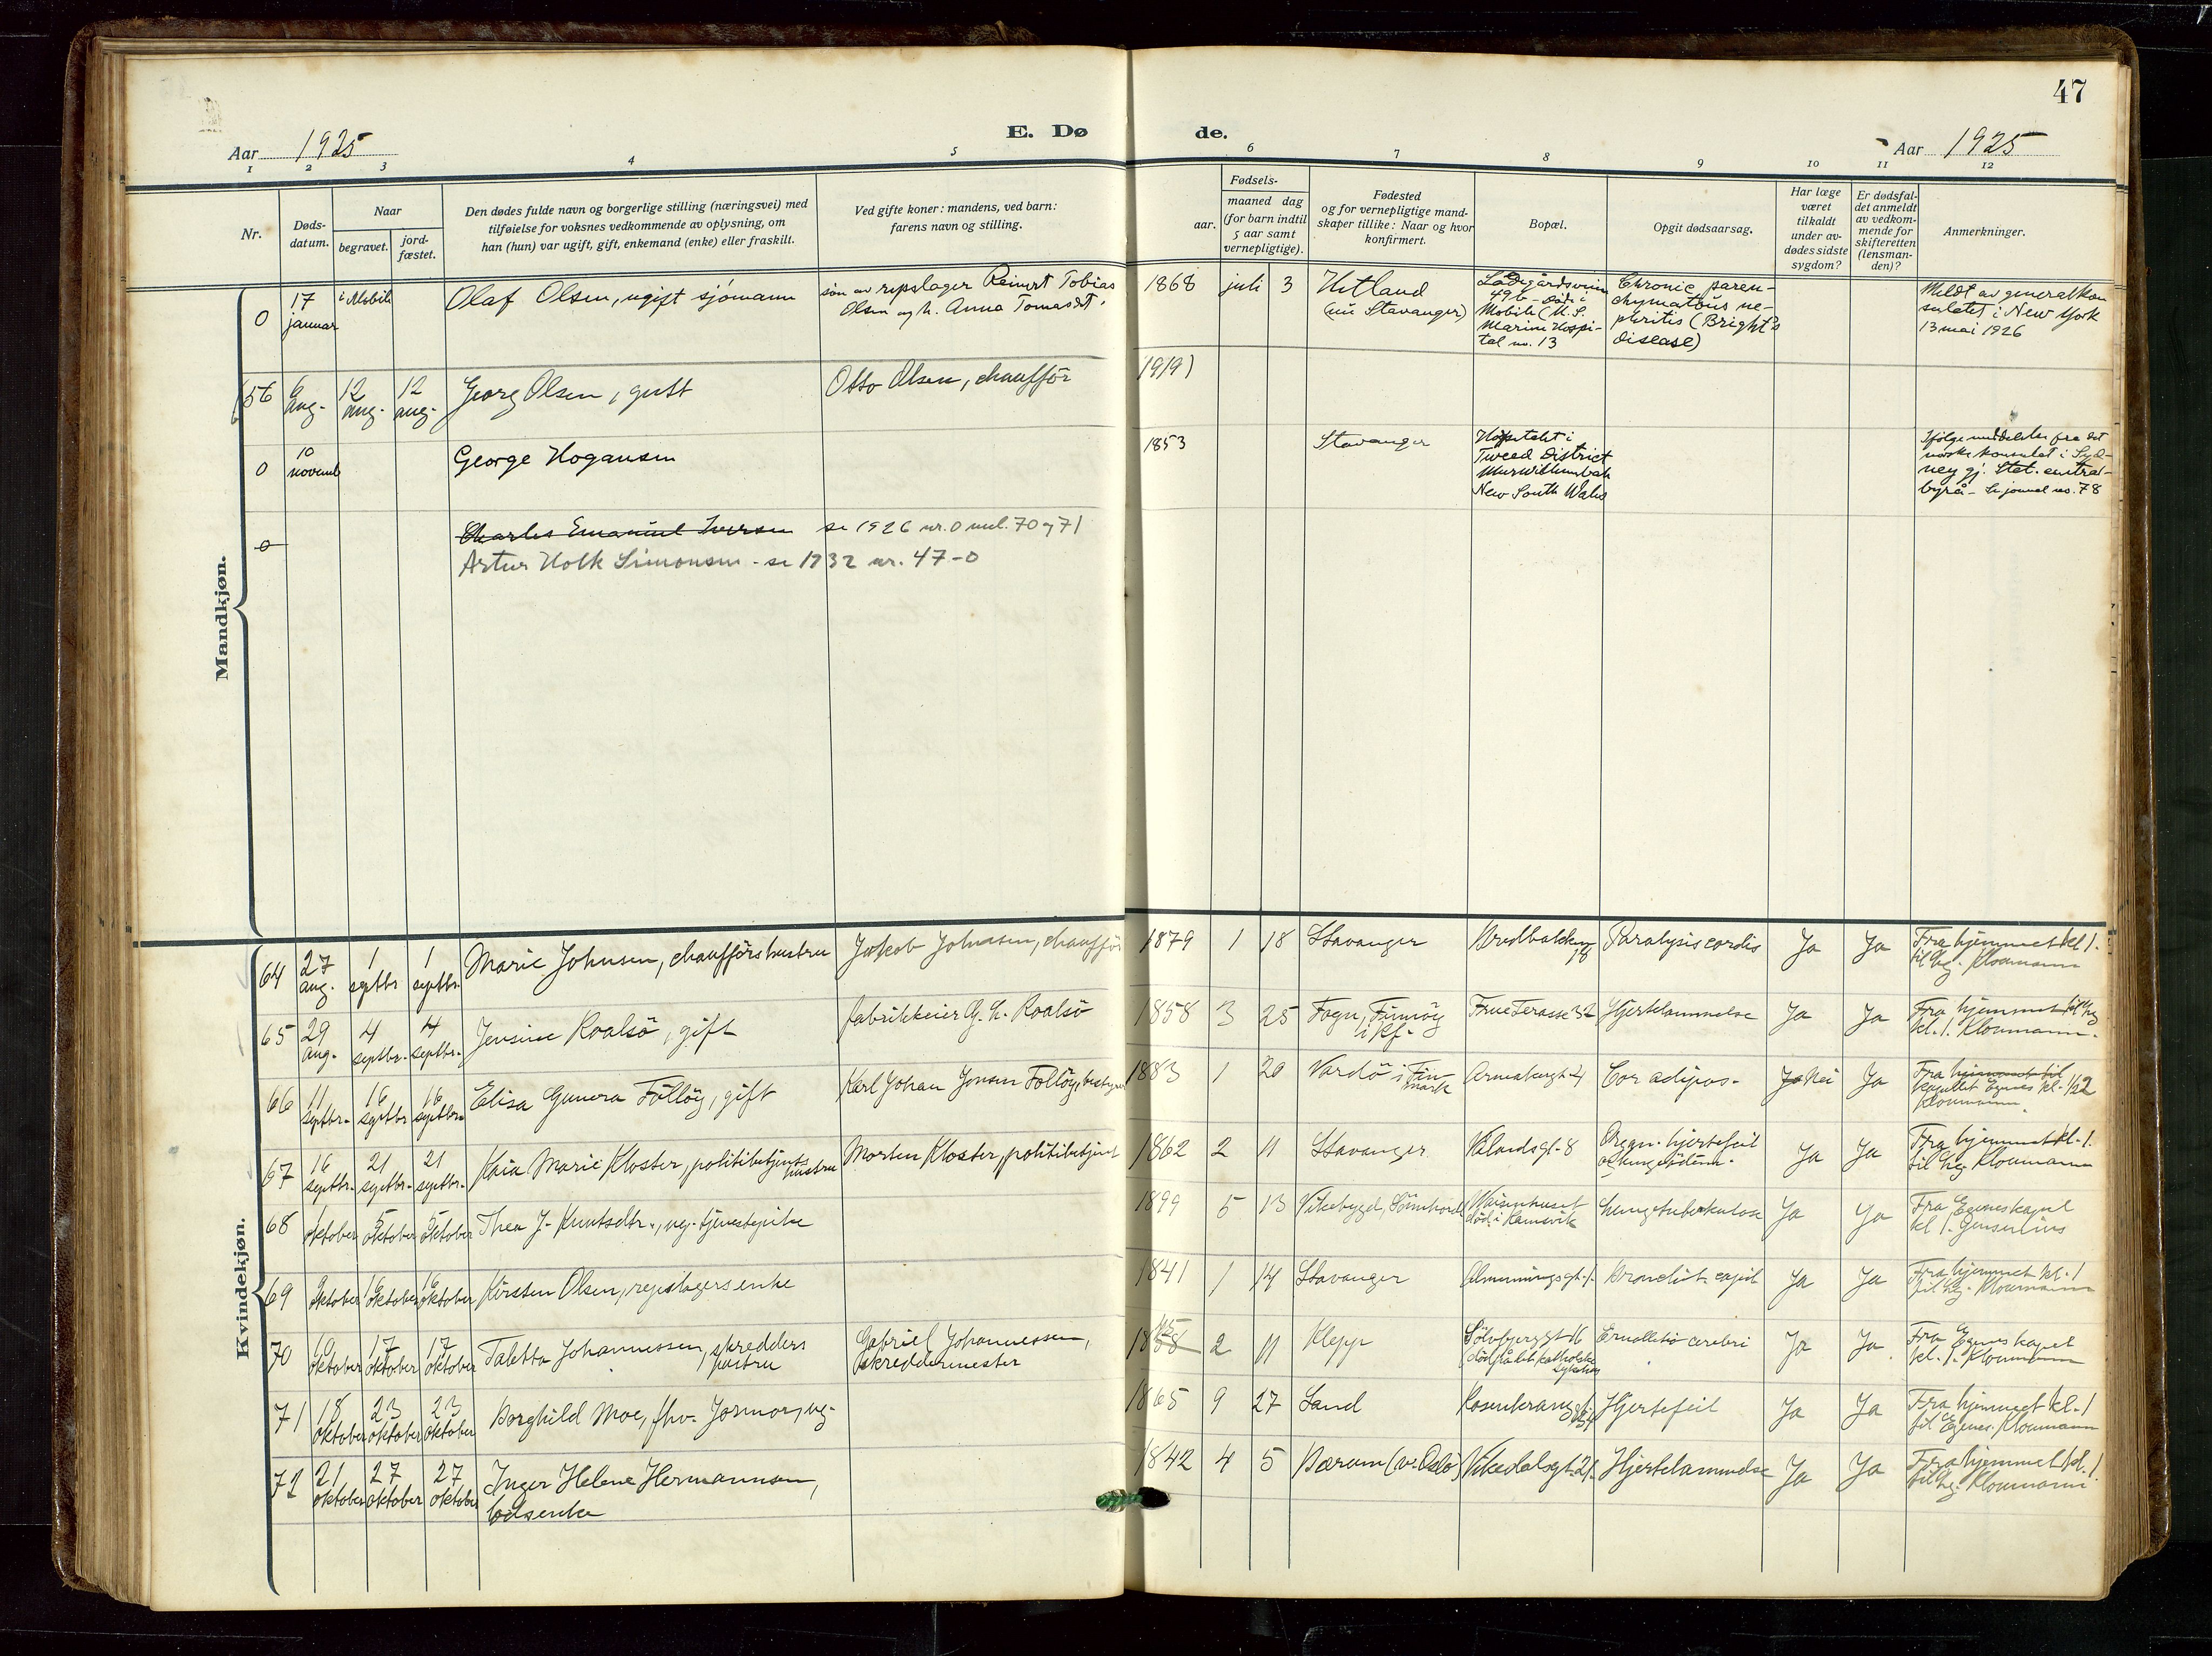 47
E. Døde.
Aar 1925
Aar 1925
1 2 3 4 5 6 7 8 9 10 11 12
Nr.
Døds-
datum.
Naar
begravet.
jord-
fæstet.
Den dødes fulde navn og borgerlige stilling (næringsvei) med
tilføielse for voksnes vedkommende av oplysning, om
han (hun) var ugift, gift, enkemand (enke) eller fraskilt.
Ved gifte koner: mandens, ved barn:
farens navn og stilling.
Fødsels-
aar.
maaned dag
(for barn indtil
5 aar samt
vernepligtige).
Fødested
og for vernepligtige mand-
skaper tillike: Naar og hvor
konfirmert.
Bopæl.
Opgit dødsaarsag.
Har læge
været
tilkaldt
under av-
dødes sidste
sygdom?
Er dødsfal-
det anmeldt
av vedkom-
mende for
skifteretten
(lensman-
den)?
Anmerkninger.
Mandkjøn.
0 17 januar i Mobile Olaf Olsen, ugift sjömann søn av repslager Reinert Tobias Olsen og h. Anna Tomasdt. 1868 juli 3 Hetland (nu Stavanger) Ladegårdsveien 49b - död i Mobile (U.S. Marine Hospital no. 13 Chronic parenchymatous nephritis (Bright's disease) Meldt av generalkonsulatet i New York 13 mai 1926
(56 6 aug. 12 aug. 12 aug. Georg Olsen, gutt Otto Olsen, chaufför 1919)
0 10 novemb George Hogansen 1853 Stavanger Hospitalet i Tweed District Murwillumbah New South Wales Ifölge meddelelse fra det norske konsulat i Sydney gj. Stat. centralbyrå - Se journal no. 78
0 Charles Emanuel Iversen se 1926 nr. 0 mel. 70 og 71
Artur Holk Simonsen - se 1932 nr. 47-0
Kvindekjøn.
64 27 aug. 1 septbr 1 septbr. Marie Johnsen, chaufförshustru Jakob Johnsen, chaufför 1879 1 18 Stavanger Bredbakken 18 Paralysis cordis Ja Ja Fra hjemmet kl. 1. til Eg. Kloumann
65 29 aug. 4 septbr. 4 septbr. Jensine Roalsö, gift fabrikkeier G. H. Roalsö 1858 3 25 Fogn, Finnöy i Rf. Frue Terasse 32 Hjertelammelse Ja Ja Fra hjemmet til Eg kl. 1. Kloumann.
66 11 septbr. 16 septbr 16 septbr. Elisa Gunera Fölløy, gift Karl Johan Jonsen Fölløy, bestyrer 1883 1 20 Vardö i Finmark Cor adipos. Ja Nei Ja Fra hjemmet til kapellet Egenes kl. 1/2 2 Kloumann.
67 16 septbr. 21 septbr. 21 septbr. Kaia Marie Kloster, politibetjents hustru Morten Kloster, politibetjent 1862 2 11 Stavanger Vålandsgt. 8 Organ. hjertefeil Ja Ja Fra hjemmet kl. 1. til Eg. Kloumann
68 1 oktober 5 oktober 5 oktober Thea J. Knutsdtr., ug. tjenestepike 1899 5 13 Vikebygd, Sönnhordl Waisenhuset död i Ramsvik Lungetuberkulose Ja Ja Fra Egenes kapel kl. 1. Jensenius
69 oktober 16 oktober 16 oktober Kirsten Olsen, repslagers enke 1841 1 14 Stavanger Almenningsgt. 1. Bronchit. capil Ja Ja Fra hjemmet kl. 1 til Eg. Kloumann
70 10 oktober 17 oktober 17 oktober Taletta Johannessen, skredders hustru Gabriel Johannessen, skreddermester 1858 45 2 11 Klepp Sölvbergsgt. 16 död på det katholske sykehus Emollitio cerebri Ja Ja Fra Egenes kapel kl. 1. Kloumann
71 18 oktober 23 oktober 23 oktober Borghild Moe, fhv. jormor, ug. 1865 9 27 Sand Rosenkranzgt. Hjertefeil Ja Ja Fra hjemmet kl. 1 til Egenes. Kloumann
72 21 oktober 27 oktober 27 oktober Inger Helene Hermannsen, enke 1842 4 5 Bærum (v. Oslo) Vikedalsgt. 21. Hjertelammelse Ja Ja Fra hjemmet kl. 1. til Eg. Kloumann